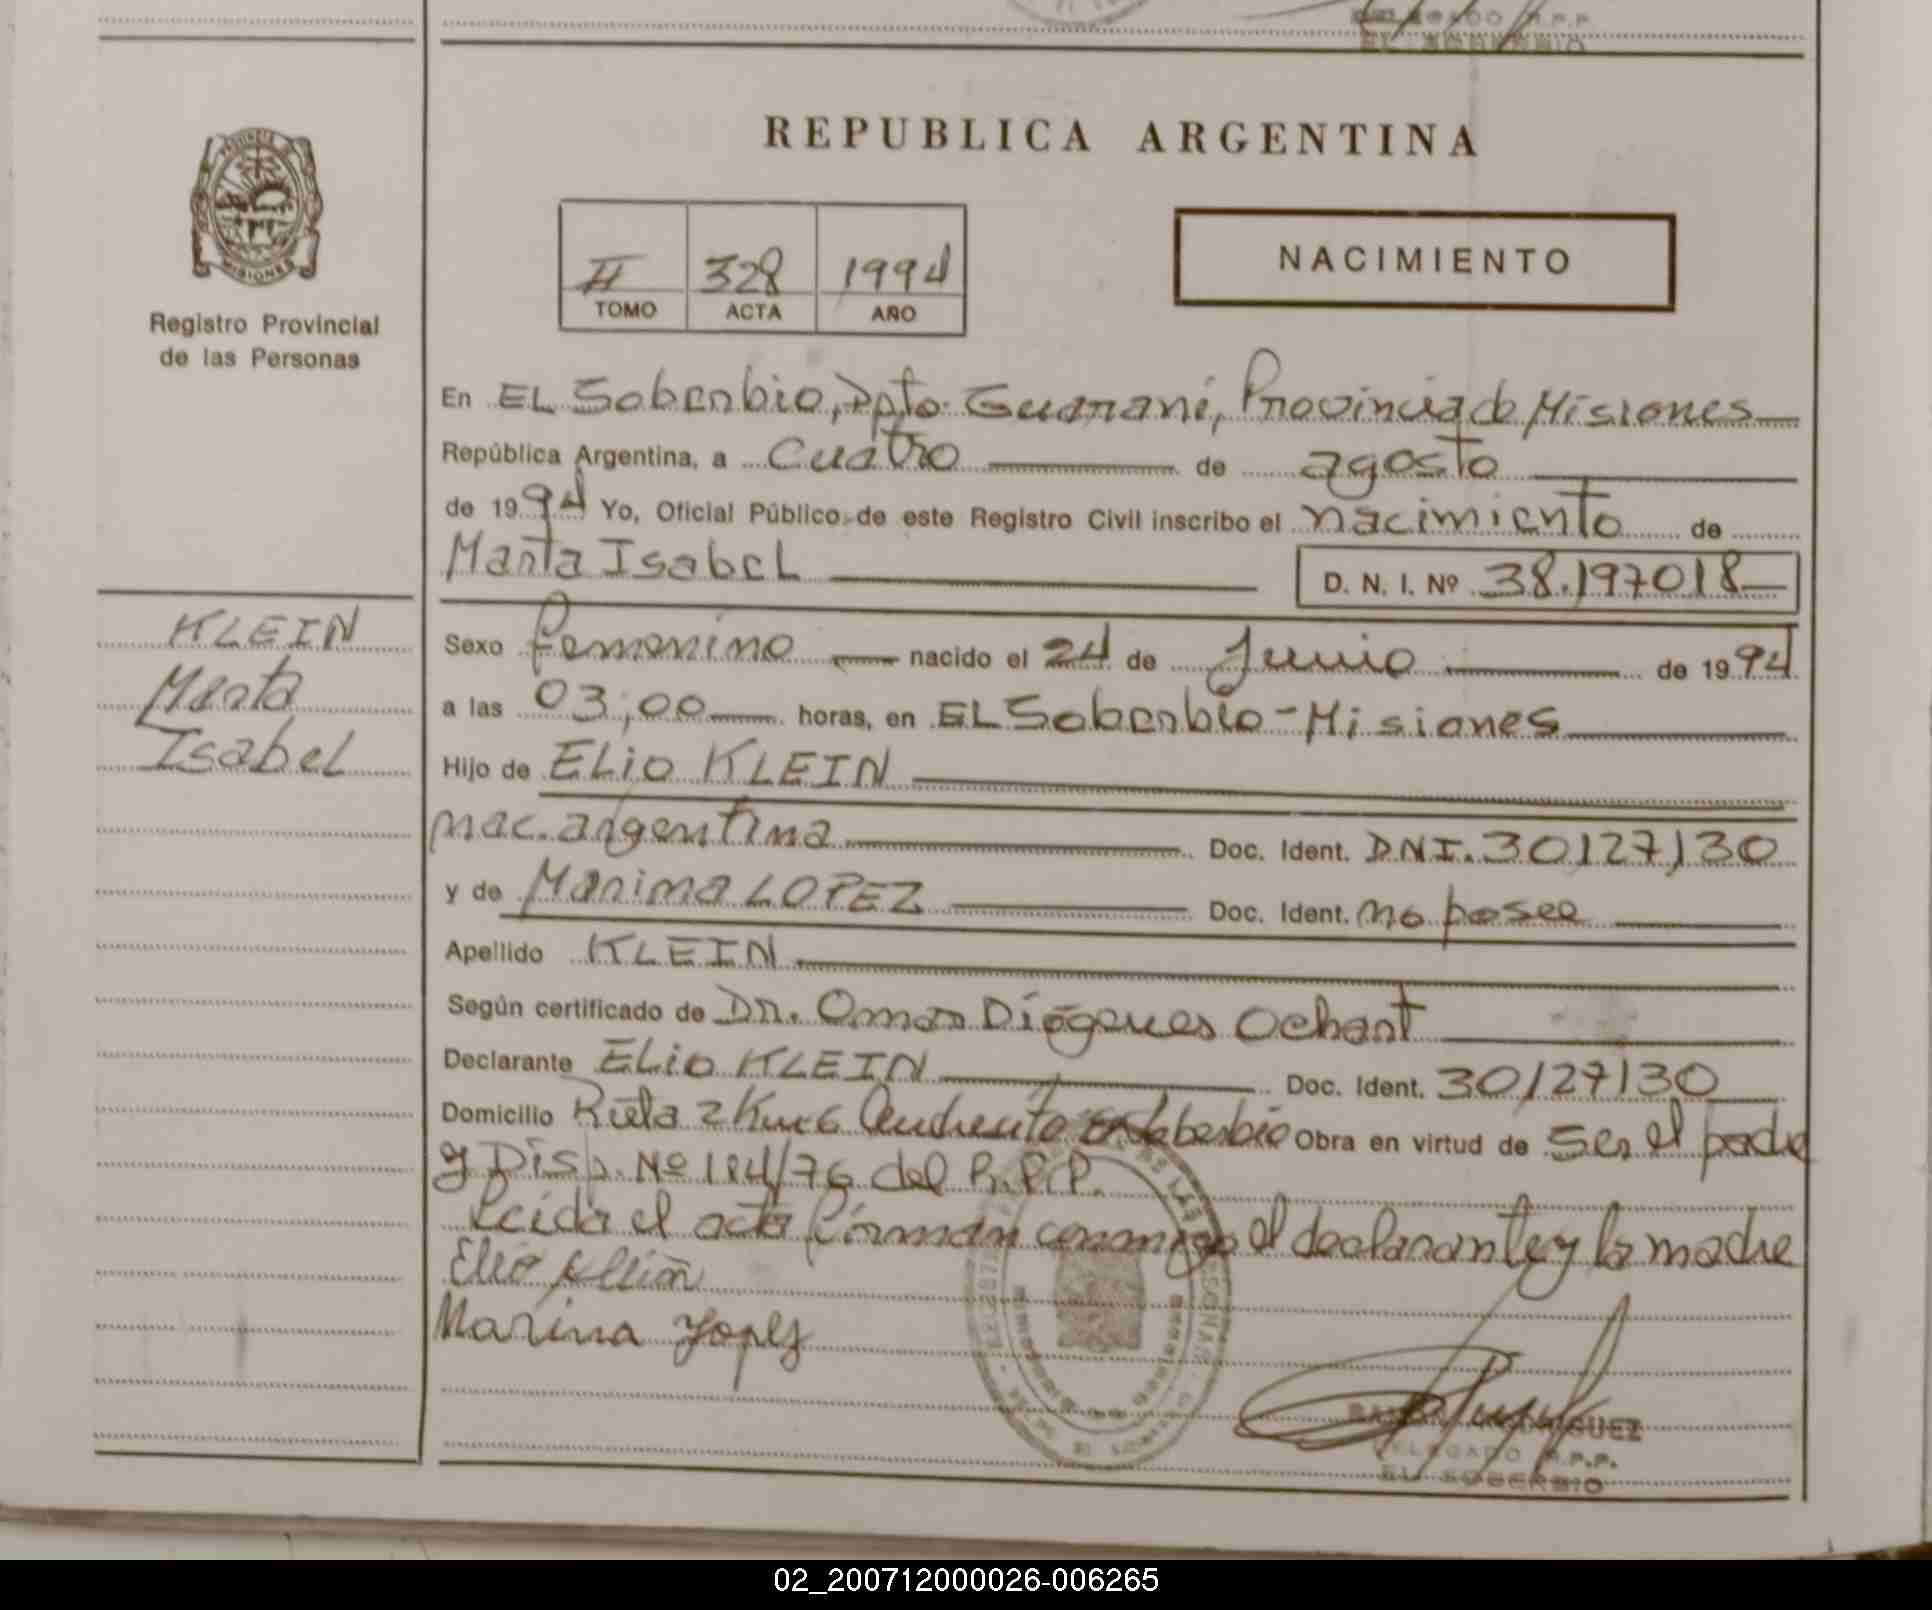 REPUBLICA ARGENTINA
PROVINCIA
MISIONES
Registro Provincial
de las Personas
II 328 1994
TOMO ACTA AÑO
NACIMIENTO
En EL Soberbio, Dpto. Guaraní, Provincia de Misiones
República Argentina, a cuatro de agosto
de 1994 Yo, Oficial Público de este Registro Civil inscribo el nacimiento de
Marta Isabel D. N. I. Nº 38.197018
KLEIN
Marta
Isabel
Sexo femenino nacido el 24 de Junio de 1994
a las 03,00 horas, en EL Soberbio - Misiones
Hijo de ELio KLEIN
nac. argentina Doc. Ident. DNI. 30127130
y de Marina LOPEZ Doc. Ident. no posee
Apellido KLEIN
Según certificado de Dr. Omar Diógenes Ochart
Declarante ELio KLEIN Doc. Ident. 30127130
Domicilio Ruta 2 Soberbio Obra en virtud de ser el padre
y Disp. Nº 184/76 del R.P.P.
Leida el acta firman conmigo el declarante y la madre
Elio Klein
Marina Lopez
DELEGADO R.P.P.
EL SOBERBIO
02_200712000026-006265